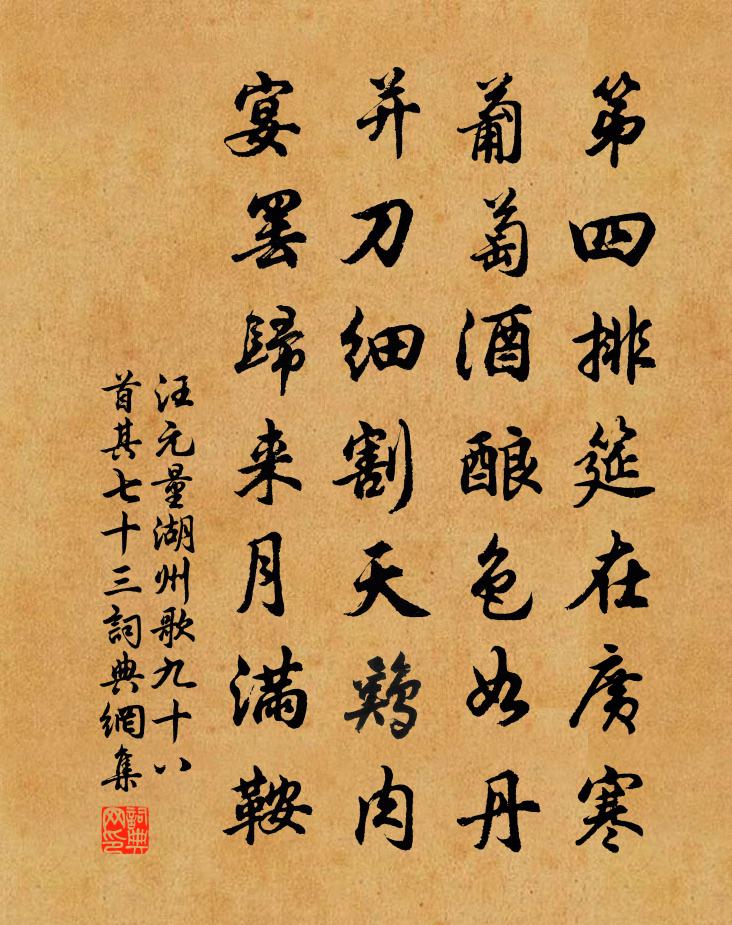 第四排筵在廣寒
葡萄酒酿色如丹
并刀细割天鷄肉
宴罢歸来月满鞍
汪元量湖州歌九十八
首其七十三詞典網集
詞典网印